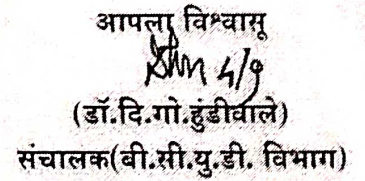 आपला विश्वासू
4/9
(डॉ.दि.गो.हुंडीवाले)
संचालक(बी.सी.यु.डी. विभाग)